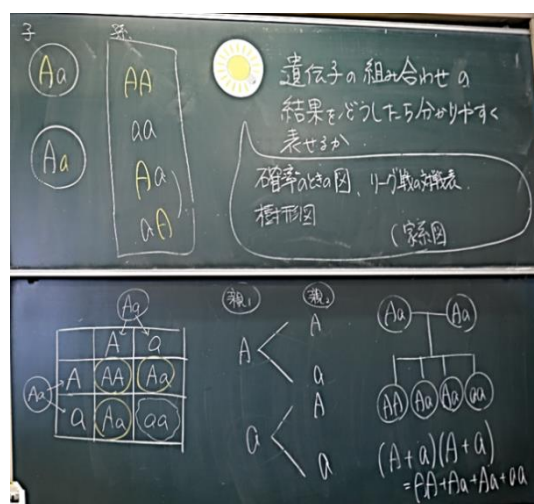 子 孫
Aa
Aa
AA
aa
Aa
aA
遺伝子の組み合わせの
結果をどうしたら分かりやすく
表せるか
確率のときの図、リーグ戦の対戦表
樹形図
(家系図
Aa
A a
Aa A AA Aa
a Aa aa
親1 親2
A A
a
a A
a
Aa Aa
AA Aa Aa aa
(A+a)(A+a)
=AA+Aa+Aa+aa